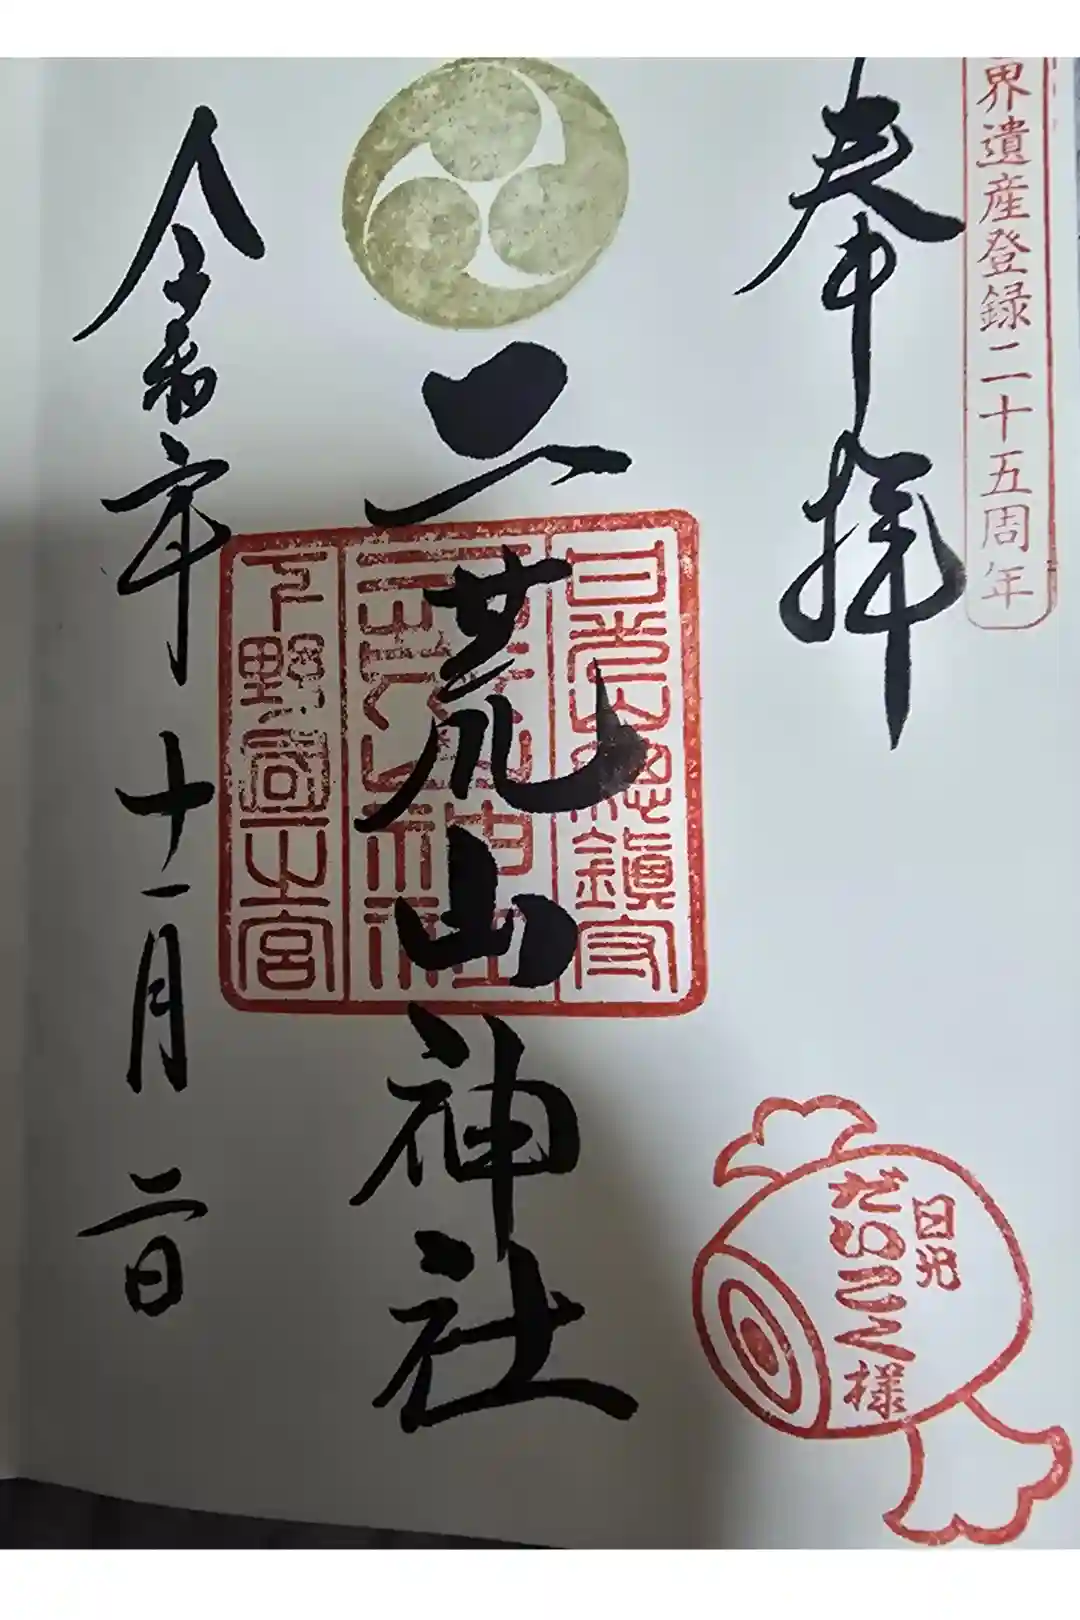 界遺産登録二十五周年
奉拝
日光
だいこく様
二荒山神社
日光山總鎮守
二荒山神社
下野國一之宮
令和六年十一月二日